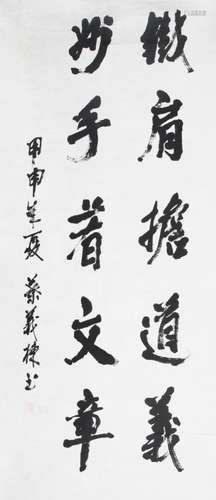 鐵肩擔道義
妙手著文章
甲申年夏 蔡義棟书